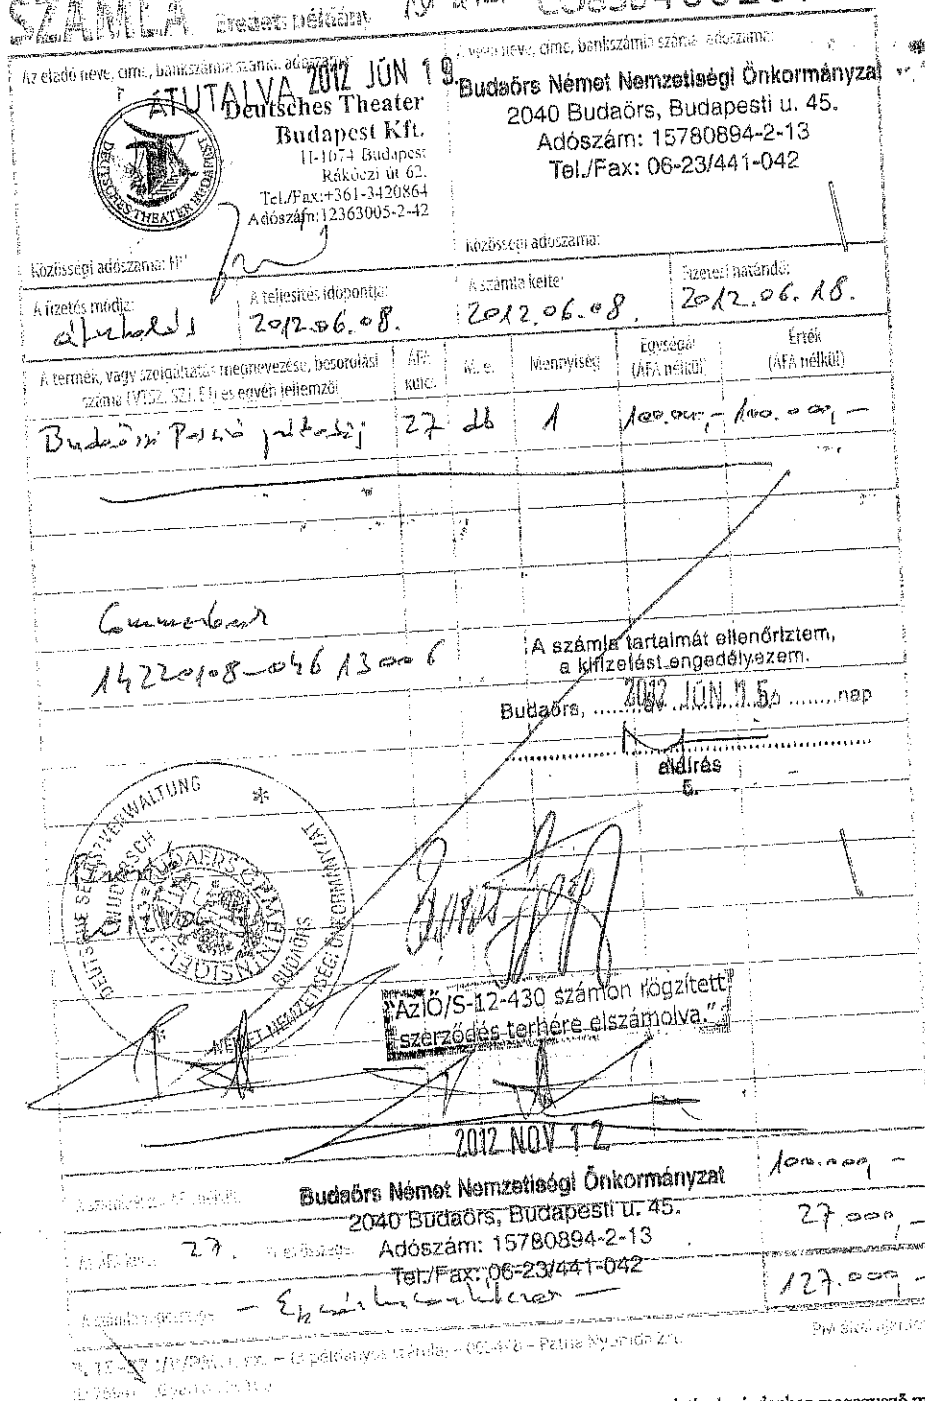 SZÁMLA
Az eladó neve, címe, bankszámla száma, adószáma:
ÁTUTALVA 2012 JÚN 19.
Deutsches Theater
Budapest Kft.
H-1074 Budapest
Rákóczi út 62.
Tel./Fax:+361-3420864
Adószám:12363005-2-42
DEUTSCHES THEATER BUDAPEST
Közösségi adószáma:
A vevő neve, címe, bankszámla száma, adószáma:
Budaörs Német Nemzetiségi Önkormányzat
2040 Budaörs, Budapesti u. 45.
Adószám: 15780894-2-13
Tel./Fax: 06-23/441-042
Közösségi adószáma:
A fizetés módja:
átutalás
A teljesítés időpontja:
2012.06.08.
A számla kelte:
2012.06.08.
Fizetési határidő:
2012.06.18.
A termék, vagy szolgáltatás megnevezése, besorolási
száma (VTSZ, SZJ, ÉJ) és egyéb jellemzői
ÁFA
kulcs
M. e.
Mennyiség
Egységár
(ÁFA nélkül)
Érték
(ÁFA nélkül)
Budaörsi Passió 27 db 1 100.000,- 100.000,-
14220108-04613006
A számla tartalmát ellenőriztem,
a kifizetést engedélyezem.
Budaörs, 2012 JÚN 15. nap
aláírás
5.
DEUTSCHE SELBSTVERWALTUNG
WUDERSCH
NÉMET NEMZETISÉGI ÖNKORMÁNYZAT
BUDAÖRS
"Az IÖ/S-12-430 számon rögzített
szerződés terhére elszámolva."
2012 NOV 12
100.000,-
Budaörs Német Nemzetiségi Önkormányzat
2040 Budaörs, Budapesti u. 45.
Adószám: 15780894-2-13
Tel./Fax: 06-23/441-042
27. 27.000,-
127.000,-